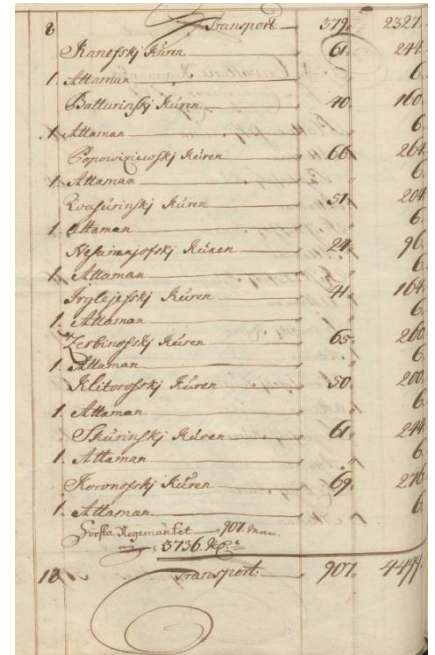 8 Transport 379. 2327.
Kanefskj Kúren 61. 244.
1. Attaman 6.
Batturinskj Kúren 40. 160.
1. Attaman 6.
Popowiziewskj Kúren 66. 264.
1. Attaman 6.
Kvasúrinskj Kúren 51. 204.
1. Attaman 6.
Nesamajofskj Kúren 24. 96.
1. Attaman 6.
Irglejefskj Kúren 41. 164.
1. Attaman 6.
Zerbinofskj Kúren 65. 260.
1. Attaman 6.
Klitorofskj Kúren 50. 200.
1. Attaman 6.
Skúrinskj Kúren 61. 244.
1. Attaman 6.
Koronofskj Kúren 69. 276.
1. Attaman 6.
Första Regemäntet 907. Man.
3736.
18. Transport: 907. 4499.